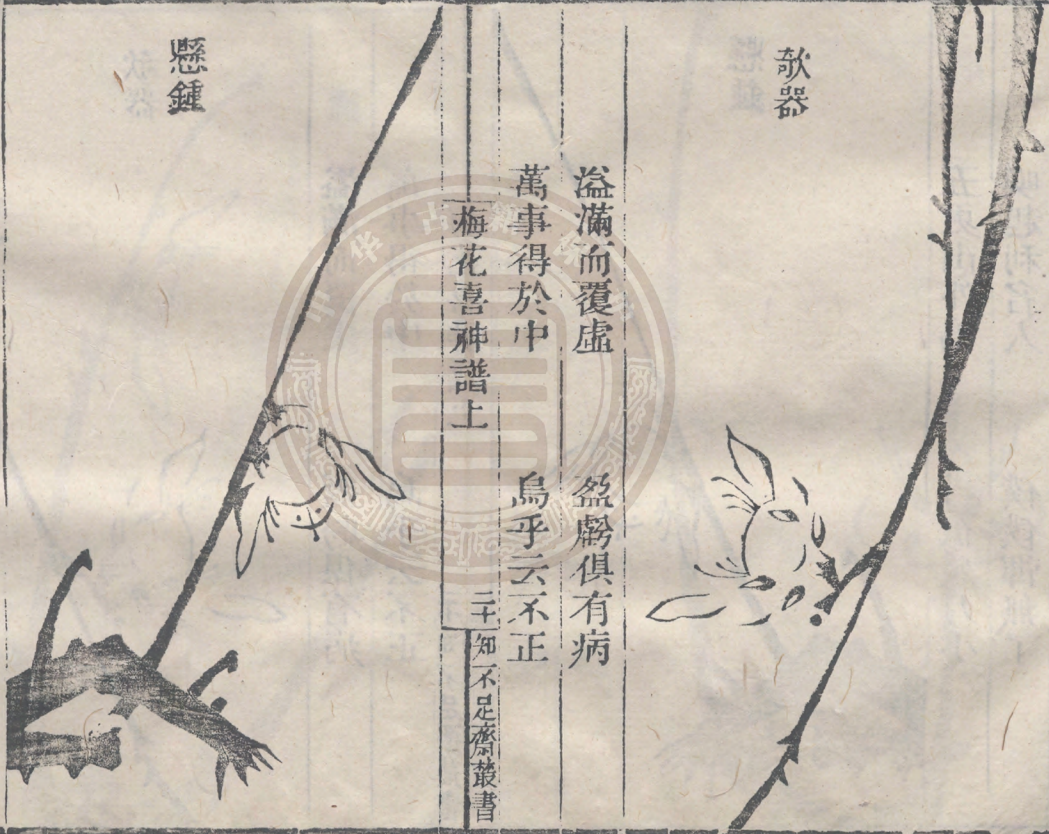 欹器
溢滿而覆虛　盈虧俱有病
萬事得於中　烏乎云不正
梅花喜神譜上　二十　知不足齋叢書
懸鍾